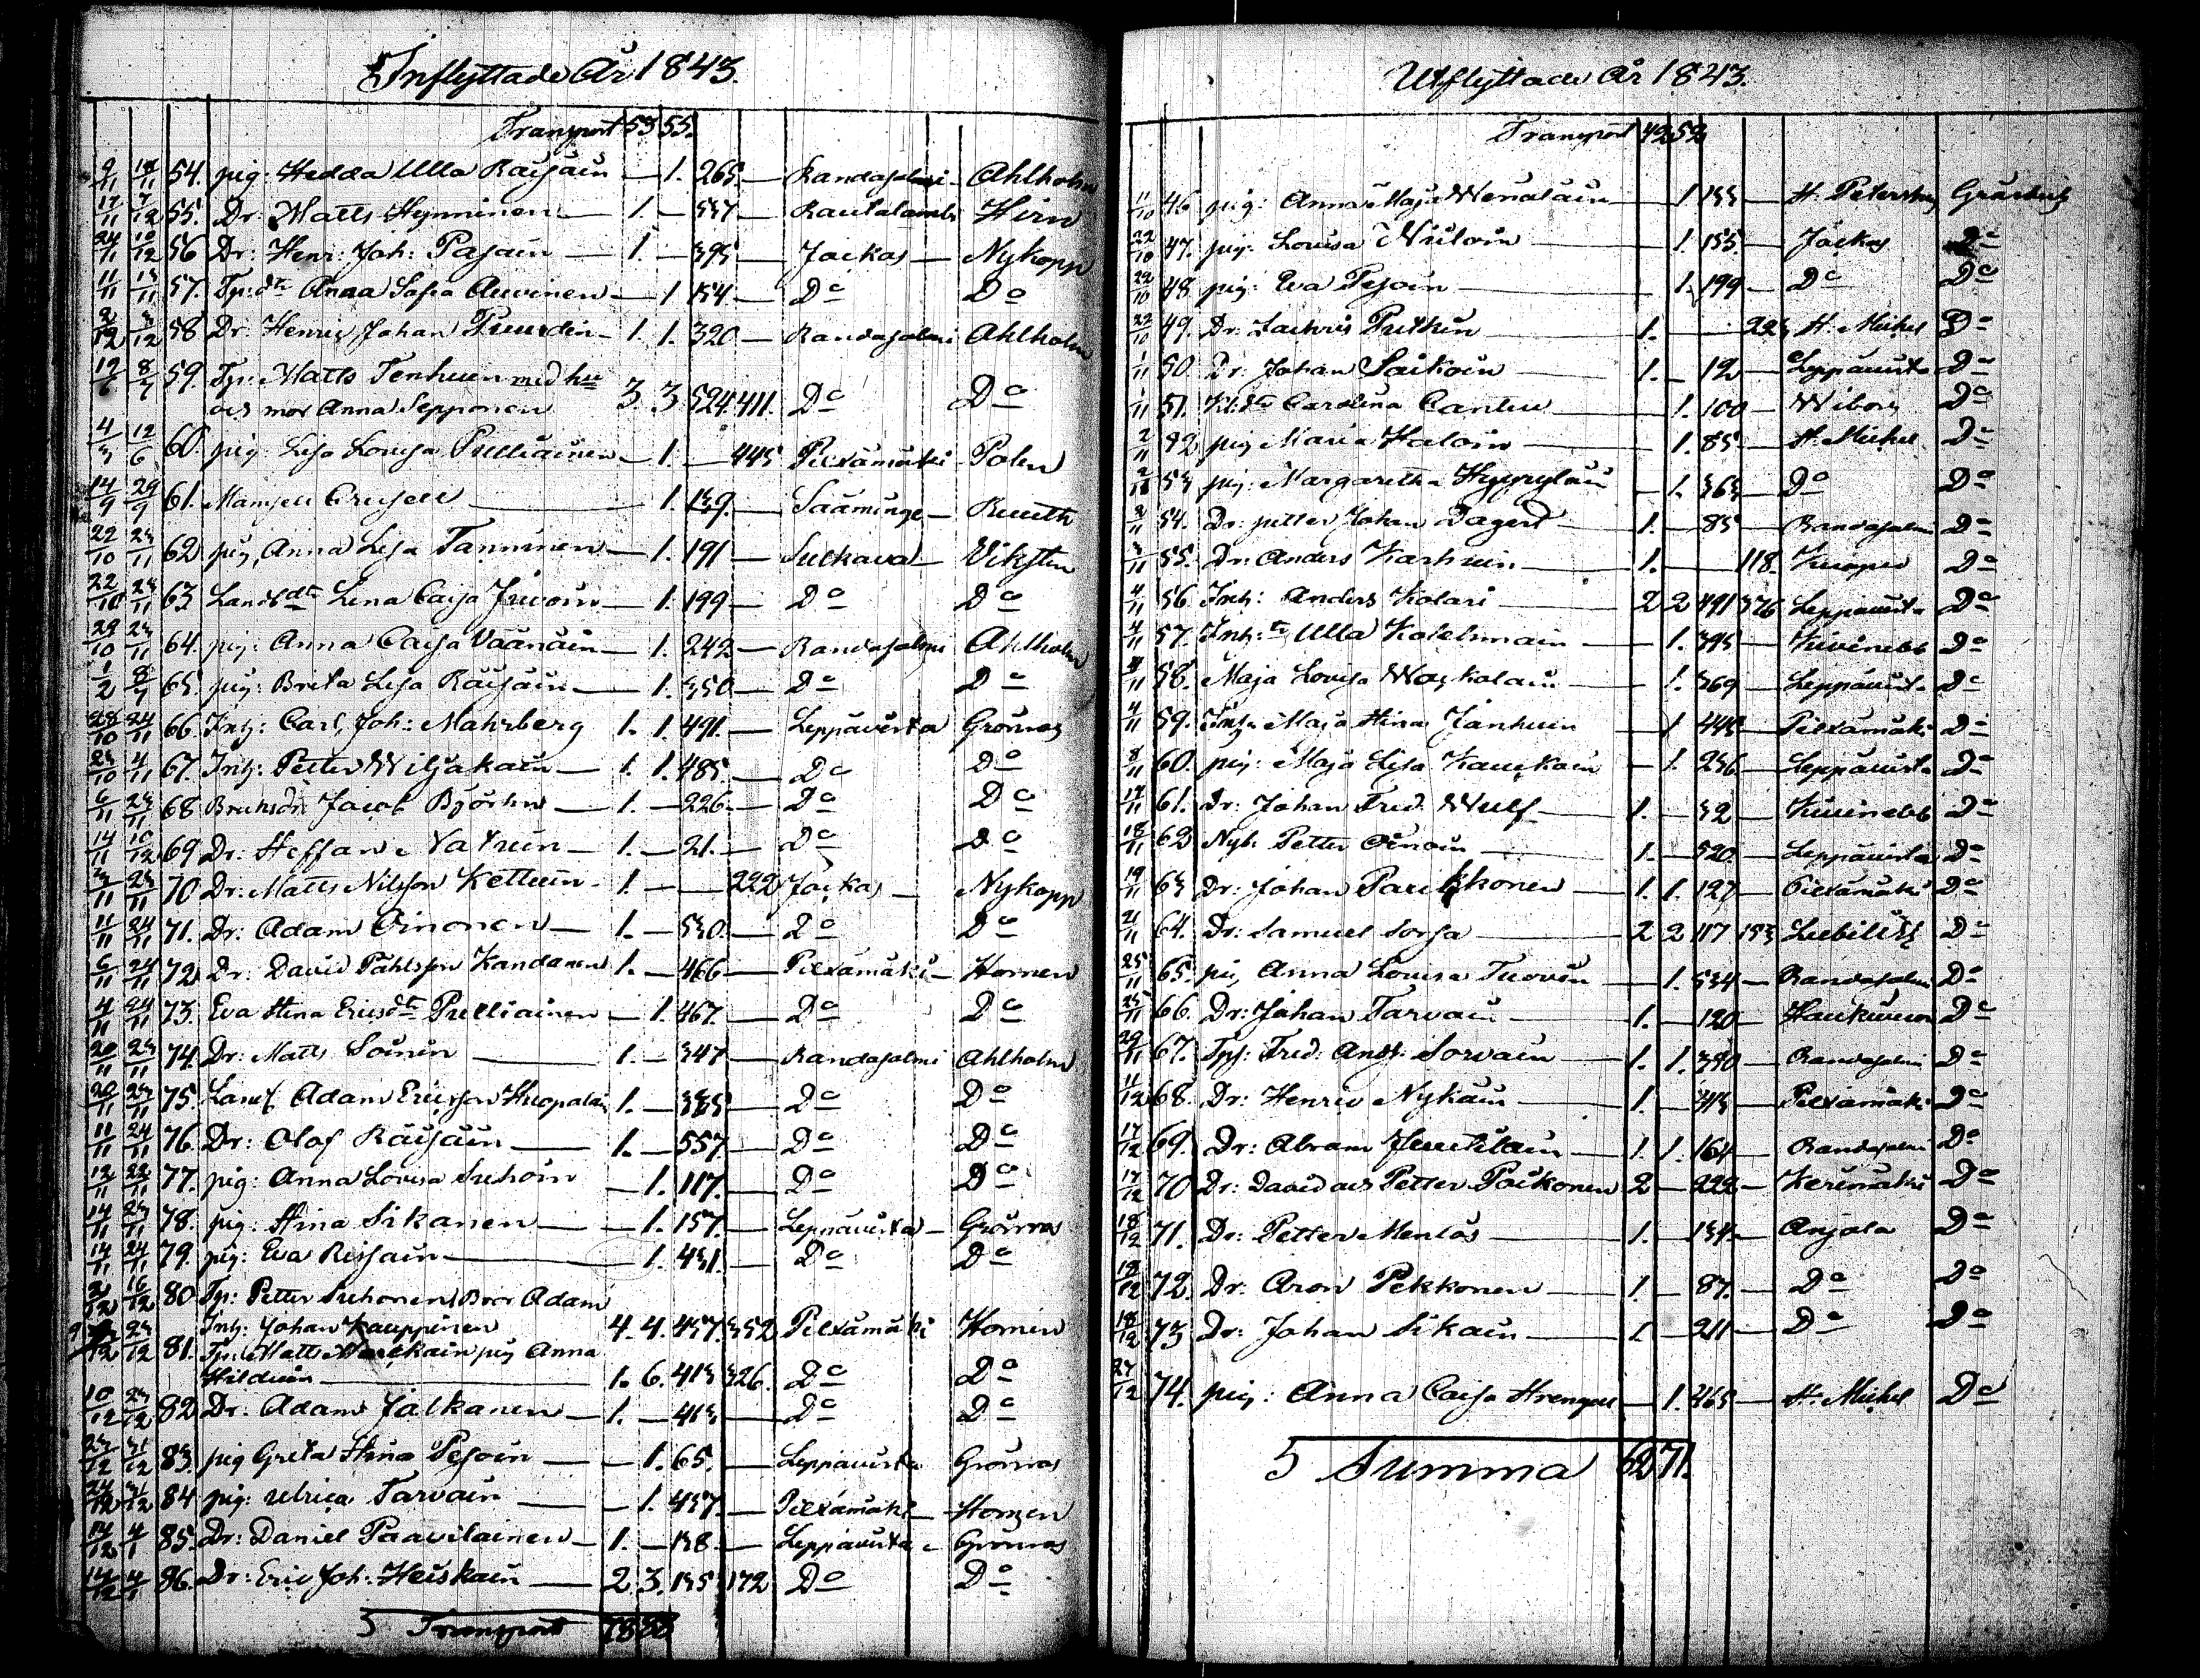 Inflyttade År 1843.
Transport 53 55.
9/11 54. pig: Hedda Ulla Räisäin — 1. 265. — Randasalmi — Ahlholm
55. Dr: Matts Hynninen — 1. — 337 — Rautalambi Hirn
56 Dr: Henr: Joh: Pasain — 1. — 395 — Jockas — Nykopp
57. Tp:dr Anna Sofia Auvinen — 1 154 — Do Do
58 Dr. Henric Johan Tuurdin — 1. 1. 320 — Randasalmi Ahlholm
59 Tp: Matts Tenhuen med hu
och mor Anna Sepponen 3. 3. 524. 411. Do Do
4/3 12/6 60. pig: Lisa Lovisa Pulliainen — 1. — 445 Piexämäki — Polen
14/9 29/9 61. Mamsell Crusell — 1. 139. — Sääminge —
22/10 23/11 62 pig, Anna Lisa Tanninen — 1. 191 — Sulkava — Viksten
22/10 23/11 63 Landb:dr Lena Caisa Juvoin — 1. 199 — Do Do
29/10 23/11 64. pig: Anna Caisa Väänäin — 1. 242 — Randasalmi Ahlholm
65. pig: Brita Lisa Räisäin — 1. 350 — Do Do
28/10 24/11 66. Inh: Carl Joh: Mahrberg 1. 1. 491. — Leppävirta Grönros
67. Inh: Petter Wiljakain — 1. 1. 485. — Do Do
6/11 23/11 68 Jacob Björkn — 1. — 226. — Do Do
14/11 10/12 69 Dr: Staffan Natuin — 1. — 21. — Do Do
70 Dr: Matts Nilsson Kettuin 1. — — 222 Jockas — Nykopp
11/11 24/11 71. Dr: Adam Oinonen — 1. — 530. — Do Do
6/11 24/11 72. Dr: David Påhlsson Kandanen 1. — 466 — Piexämäki — Homen
4/11 24/11 73. Eva Stina Ericsdr Pulliainen — 1. 467. — Do Do
20/11 23/11 74. Dr: Matts Soinin — 1. — 347 — Randasalmi Ahlholm
20/11 23/11 75. Landb. Adam Ericsson Kuopalain 1. — — Do Do
11/11 24/11 76. Dr: Olof Räisäin — 1. — 557. — Do Do
12/11 22/11 77. pig: Anna Lovisa Suhoin — 1. 117. — Do Do
14/11 23/11 78. pig: Stina Sikanen — 1. 157. — Leppävirta — Grönros
14/11 24/11 79. pig: Eva Reisain — 1. 431. — Do Do
2/12 16/12 80 Tp: Petter Suhonen, Bror Adam
Inh: Johan Kauppinen 4. 4. 457. 352. Piexämäki Homen
81. Tp: Matts pig Anna
Hilduin — 1. 6. 413 326. Do Do
10/12 23/12 82 Dr. Adam Jälkanen — 1. — 413 — Do Do
23/12 31/12 83. pig Greta Stina Pesoin — 1. 65. — Leppävirta Grönros
84. pig: Ulrica Tarvain — 1. 457. — Piexämäki — Homen
14/12 4/1 85. Dr: Daniel Paavilainen — 1. — 138. — Leppävirta — Grönros
14/12 4/1 86. Dr: Eric Joh: Heiskain — 2. 3. 135 172 Do Do
S Transport
Utflyttade År 1843.
Transport 42 52
11/10 46 pig: Anna Maja Wenäläin — 1 133 — St. Petersburg
22/10 47. pig: Lovisa — 1. 155. — Jockas Do
22/10 48 pig: Eva Pesoin — 1. 199 — Do Do
22/10 49. Dr: Zachris Putkin — 1. — 223 St. Michel Do
1/11 50. Dr: Johan Saikoin — 1. — 12 — Leppävirta Do
1/11 51. Carolina Cantu — 1. 100 — Wiborg Do
2/11 52 pig Maria Kaloin — 1. 85. — St. Michel Do
53 pig: Margaretha Hyyryläin — 1. 363 — Do Do
54. Dr: petter Johan Tagert — 1. — 85 — Randasalmi Do
55. Dr: Anders Karhuin — 1. — 118. Kuopio Do
4/11 56 Inh: Anders Kolari — 2 2 491 376 Leppävirta Do
4/11 57. Inh:a Ulla Kokelmain — 1. 395 — Kivineb Do
4/11 58. Maja Lovisa Waskolain — 1. 369 — Leppävirta Do
4/11 59. Inh: Maja Stina Janhuin 1 445 — Piexämäki Do
8/11 60. pig: Maja Lisa Kaukain — 1. 236 — Leppävirta Do
17/11 61. Dr: Johan Fred. Wulf — 1. — 32 — Kivineb Do
18/11 62 Nyb: Petter Oinoin — 1. — 520 — Leppävirta Do
19/11 63 Dr: Johan Paukkonen — 1. 1. 127 — Piexämäki Do
21/11 64. Dr: Samuel Sorsa — 2 2 117 153 Do
25/11 65. pig Anna Lovisa Tuovin — 1. 534 — Randasalmi Do
25/11 66. Dr: Johan Tarvain — 1. — 120 — Haukivuori Do
29/11 67. Fred: And: Sorvain — 1. 1. 390 — Randasalmi Do
11/12 68. Dr: Henric Nykäin — 1. — 313 — Piexämäki Do
17/12 69. Dr: Abram Huutilain — 1. 1. 164 — Randasalmi Do
17/12 70 Dr: David och Petter Poikonen 2 — 222 — Kerimäki Do
18/12 71. Dr: Petter Menlös — 1. — 134 — Anjala Do
18/12 72. Dr: Aron Pekkonen — 1 — 87. — Do Do
18/12 73 Dr: Johan Sikain — 1. — 211 — Do Do
27/12 74. pig: Anna Caisa Strengell — 1. 265 — St. Michel Do
S Summa 62 71.